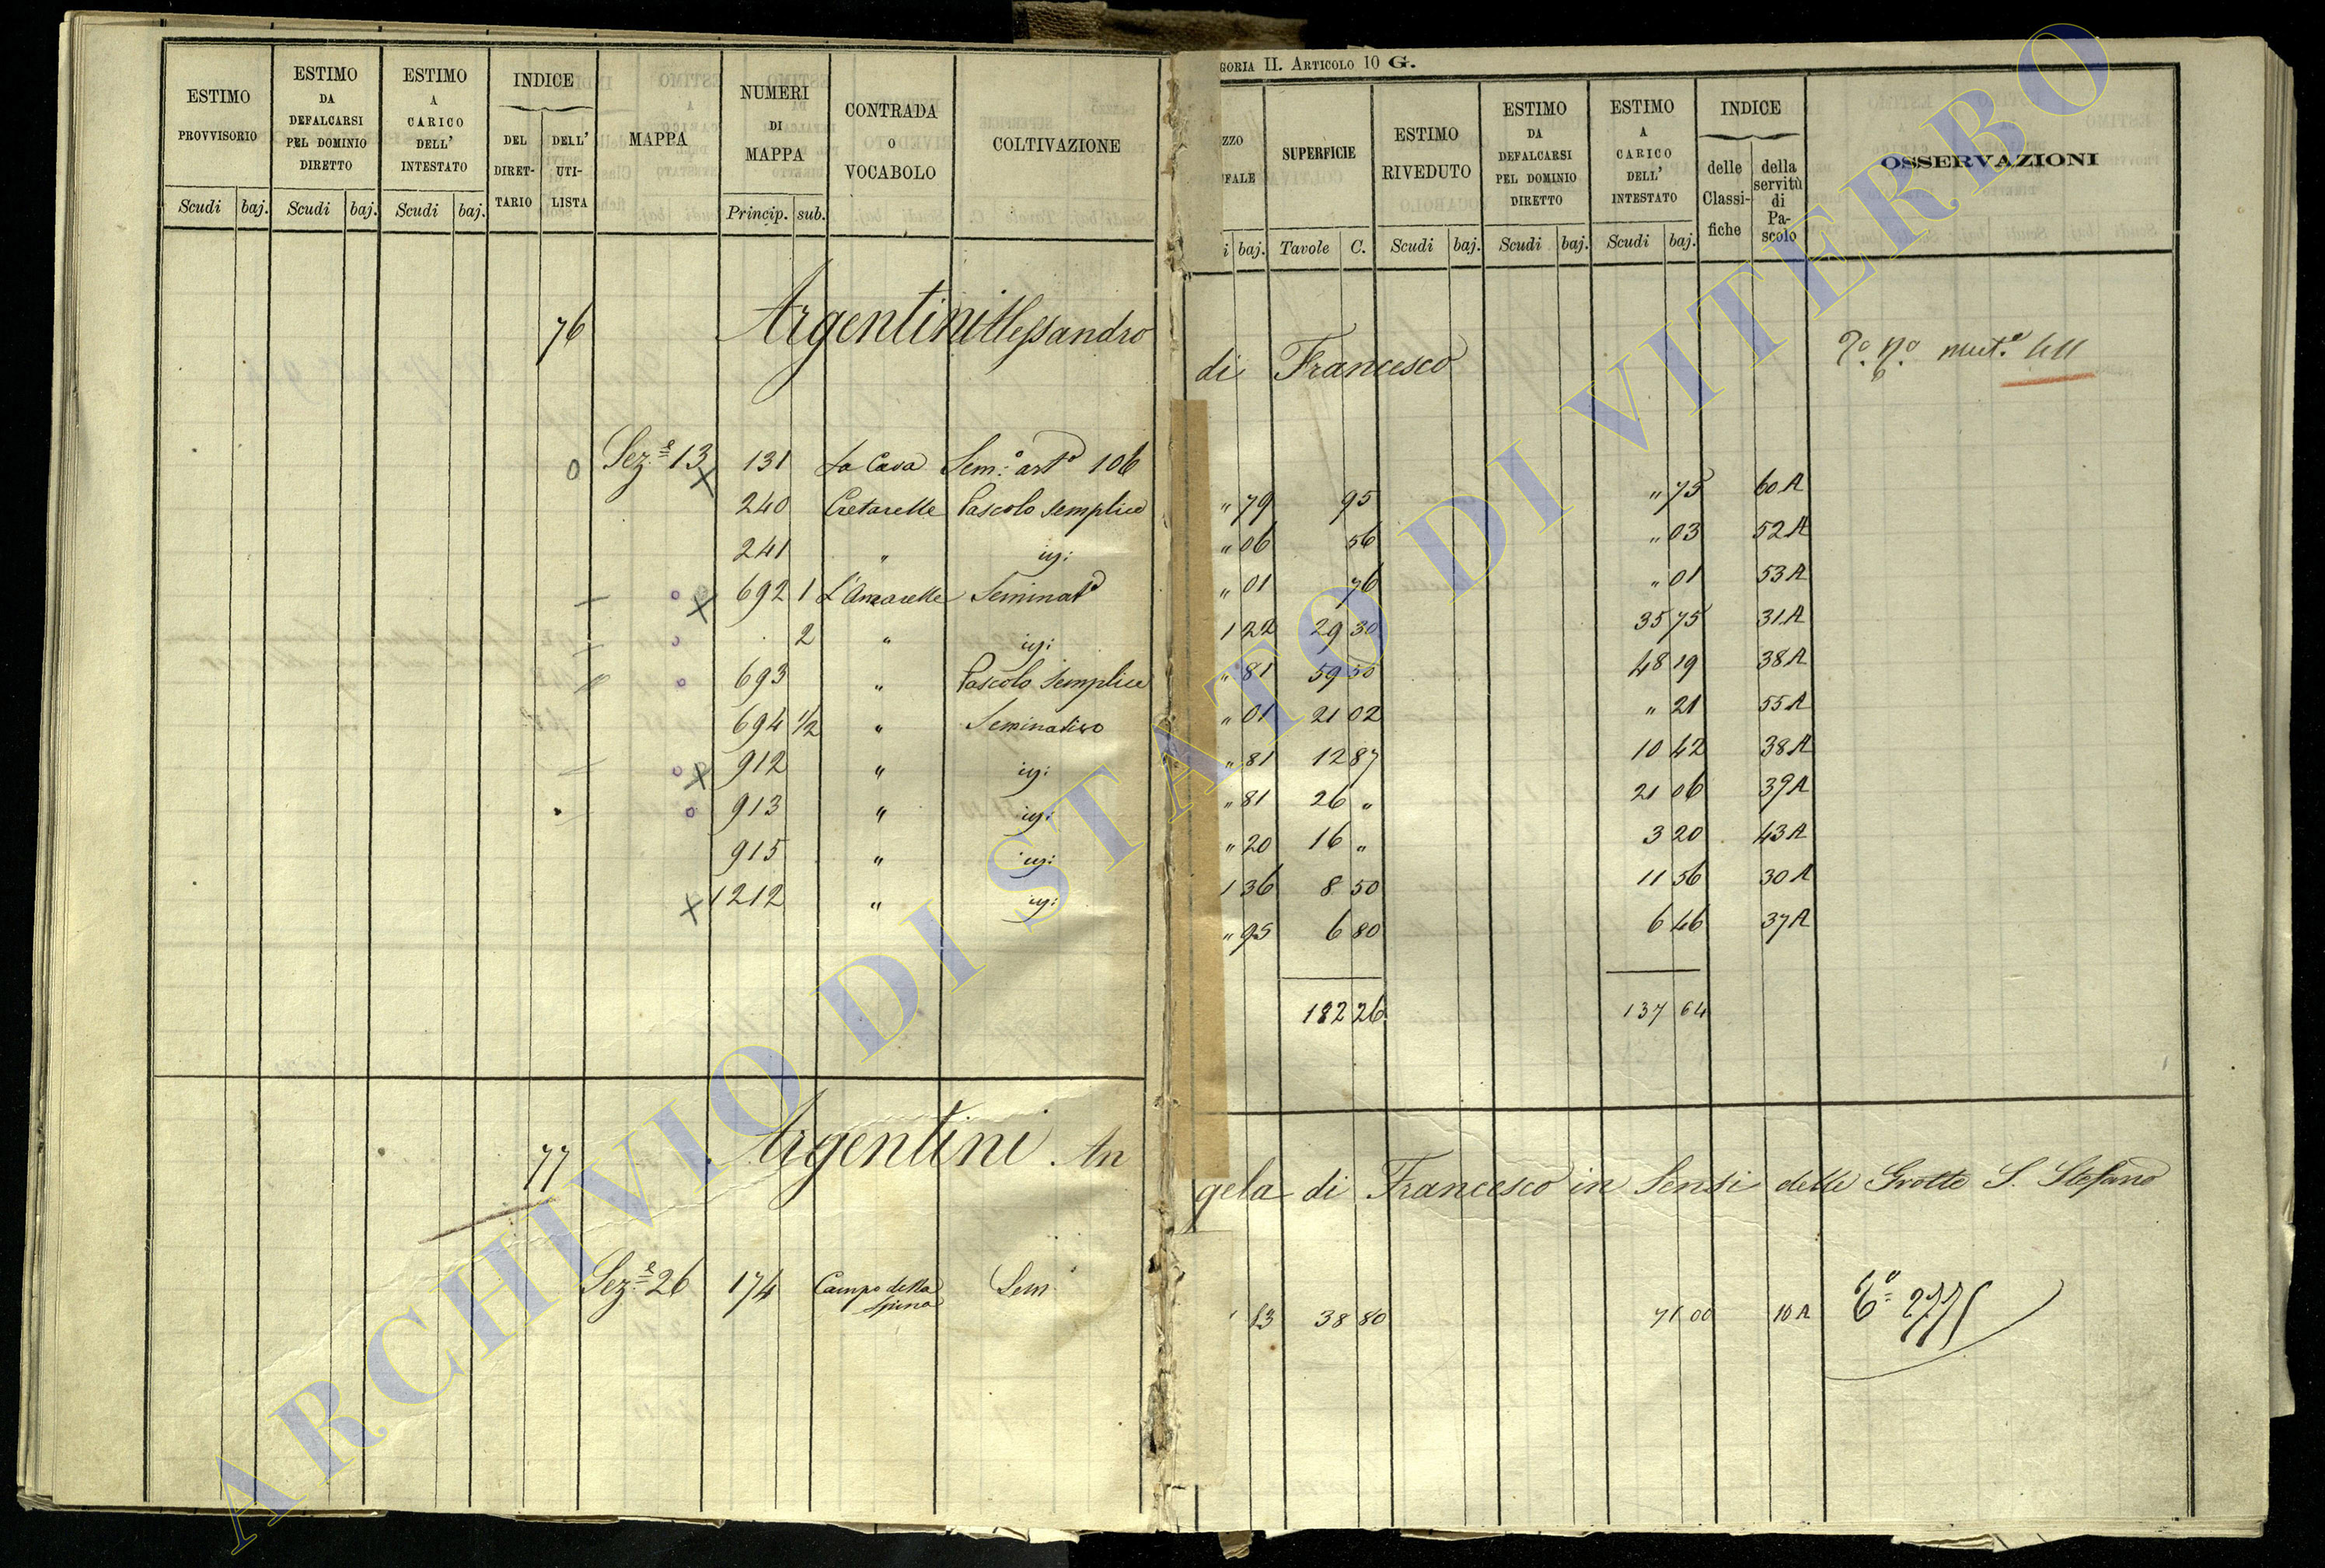 GORIA II. ARTICOLO 10 G.
ESTIMO PROVVISORIO
ESTIMO DA DEFALCARSI PEL DOMINIO DIRETTO
ESTIMO A CARICO DELL' INTESTATO
INDICE
DEL DIRET-TARIO
DELL' UTI-LISTA
MAPPA
NUMERI DI MAPPA
CONTRADA O VOCABOLO
COLTIVAZIONE
Scudi baj. Scudi baj. Scudi baj. Princip. sub.
ZZO
FALE
SUPERFICIE
ESTIMO RIVEDUTO
ESTIMO DA DEFALCARSI PEL DOMINIO DIRETTO
ESTIMO A CARICO DELL' INTESTATO
INDICE
delle Classi-fiche
della servitù di Pa-scolo
OSSERVAZIONI
i baj. Tavole C. Scudi baj. Scudi baj. Scudi baj.
76 Argentini Alessandro di Francesco
mut.e 411
o Sez.e 13 x 131 La Cava Sem.o art.o 106 " 79 95 " 75 60 A
240 Cretarelle Pascolo semplice " 06 56 " 03 52 A
241 " ig: " 01 76 " 01 53 A
o x 692 1 L'Amarelle Seminat.o 1 22 29 30 35 75 31 A
o 2 " ig: " 81 59 50 48 19 38 A
o 693 " Pascolo semplice " 01 21 02 " 21 55 A
694 1/2 " Seminativo " 81 12 87 10 42 38 A
o x 912 " ig: " 81 26 " 21 06 39 A
o 913 " ig: " 20 16 " 3 20 43 A
915 " ig: 1 36 8 50 11 56 30 A
x 1212 " ig: " 95 6 80 6 46 37 A
182 26 137 64
77 Argentini Angela di Francesco in Sensi delle Grotte S. Stefano
Sez.e 26 174 Campo della Spina Sem 83 38 80 71 00 10 A
ARCHIVIO DI STATO DI VITERBO